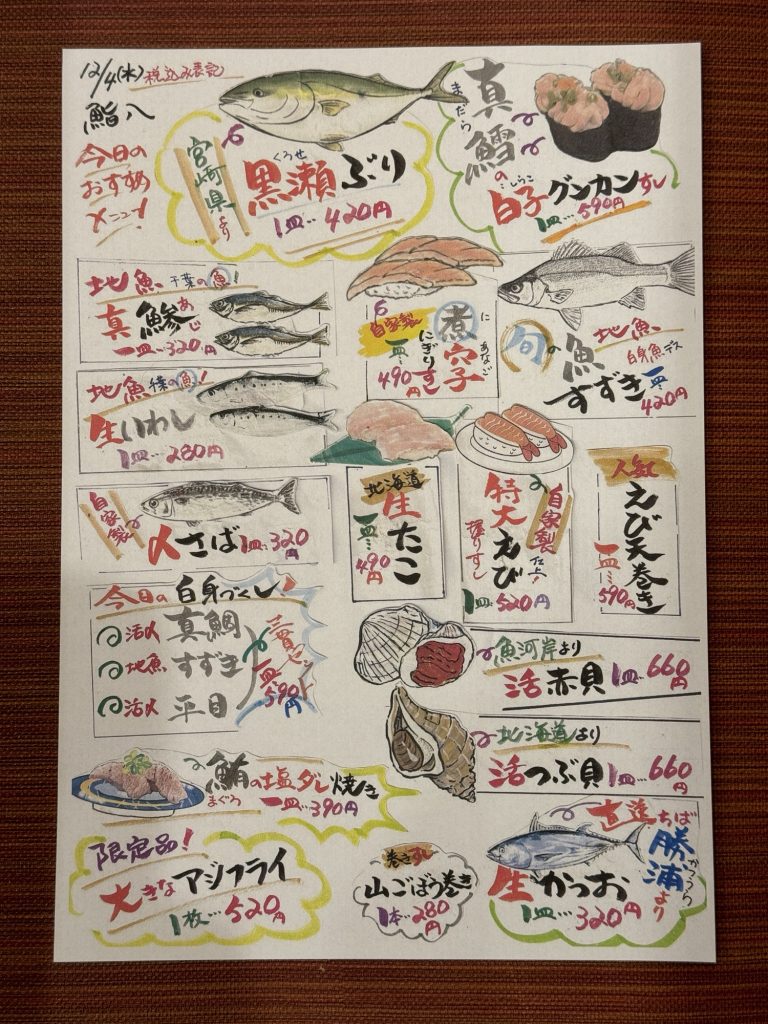 12/4(水) 税込み表記
鮨八
今日の
おすすめ
メニュー!
宮崎県より
くろせ
黒瀬ぶり
1皿…420円
まだら
真鱈の
しらこ
白子グンカンすし
1皿…590円
地魚 千葉の魚!
あじ
真鯵
一皿…320円
自家製
に あなご
煮穴子
にぎりすし
一皿…490円
旬の魚
地魚
白身魚デス
すずき
一皿…420円
地魚
生いわし
1皿…280円
自家製
〆さば 1皿…320円
北海道
生たこ
一皿…490円
自家製
特大えび
握りすし
1皿…520円
人気
えび天巻き
一皿…590円
今日の白身づくし
活〆 真鯛
地魚 すずき
活〆 平目
一皿…590円
魚河岸より
活赤貝 1皿…660円
北海道より
活つぶ貝 1皿…660円
鮪の塩ダレ焼き
まぐろ
一皿…390円
限定品!
大きなアジフライ
1枚…520円
巻きすし
山ごぼう巻き
1本…280円
直送 ちば
勝浦より
かつうら
生かつお
1皿…320円